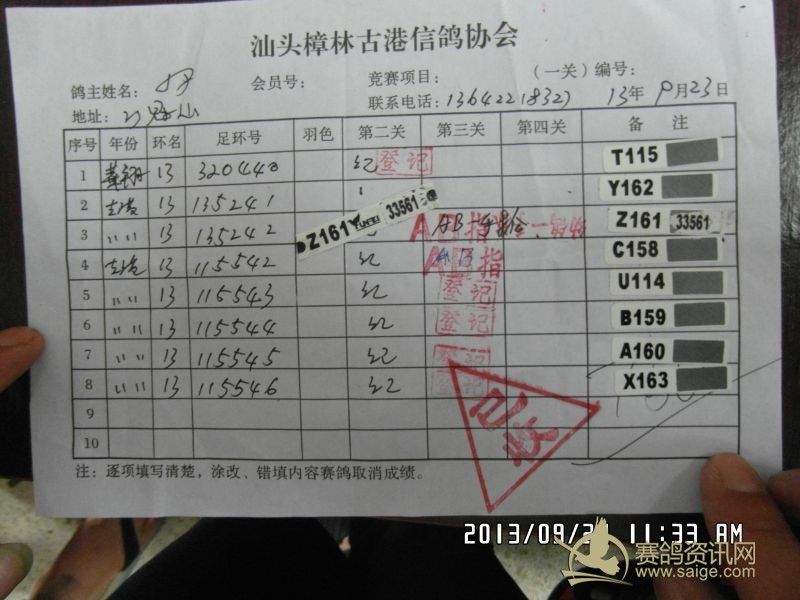 汕头樟林古港信鸽协会
鸽主姓名: 会员号: 竞赛项目: (一关)编号:
地址: 联系电话:13642218327 13年9月23日
序号 年份 环名 足环号 羽色 第二关 第三关 第四关 备 注
1 13 320440 登记 T115
2 13 135241 Y162
3 〃 〃 13 135242 Z161 33561 AB Z161 33561
4 13 115542 AB指 C158
5 〃 〃 13 115543 登记 U114
6 〃 〃 13 115544 登记 B159
7 〃 〃 13 115545 登记 A160
8 〃 〃 13 115546 登记 X163
9
10
已收
注:逐项填写清楚,涂改、错填内容赛鸽取消成绩。
11:33 AM
赛鸽资讯网
www.saige.com